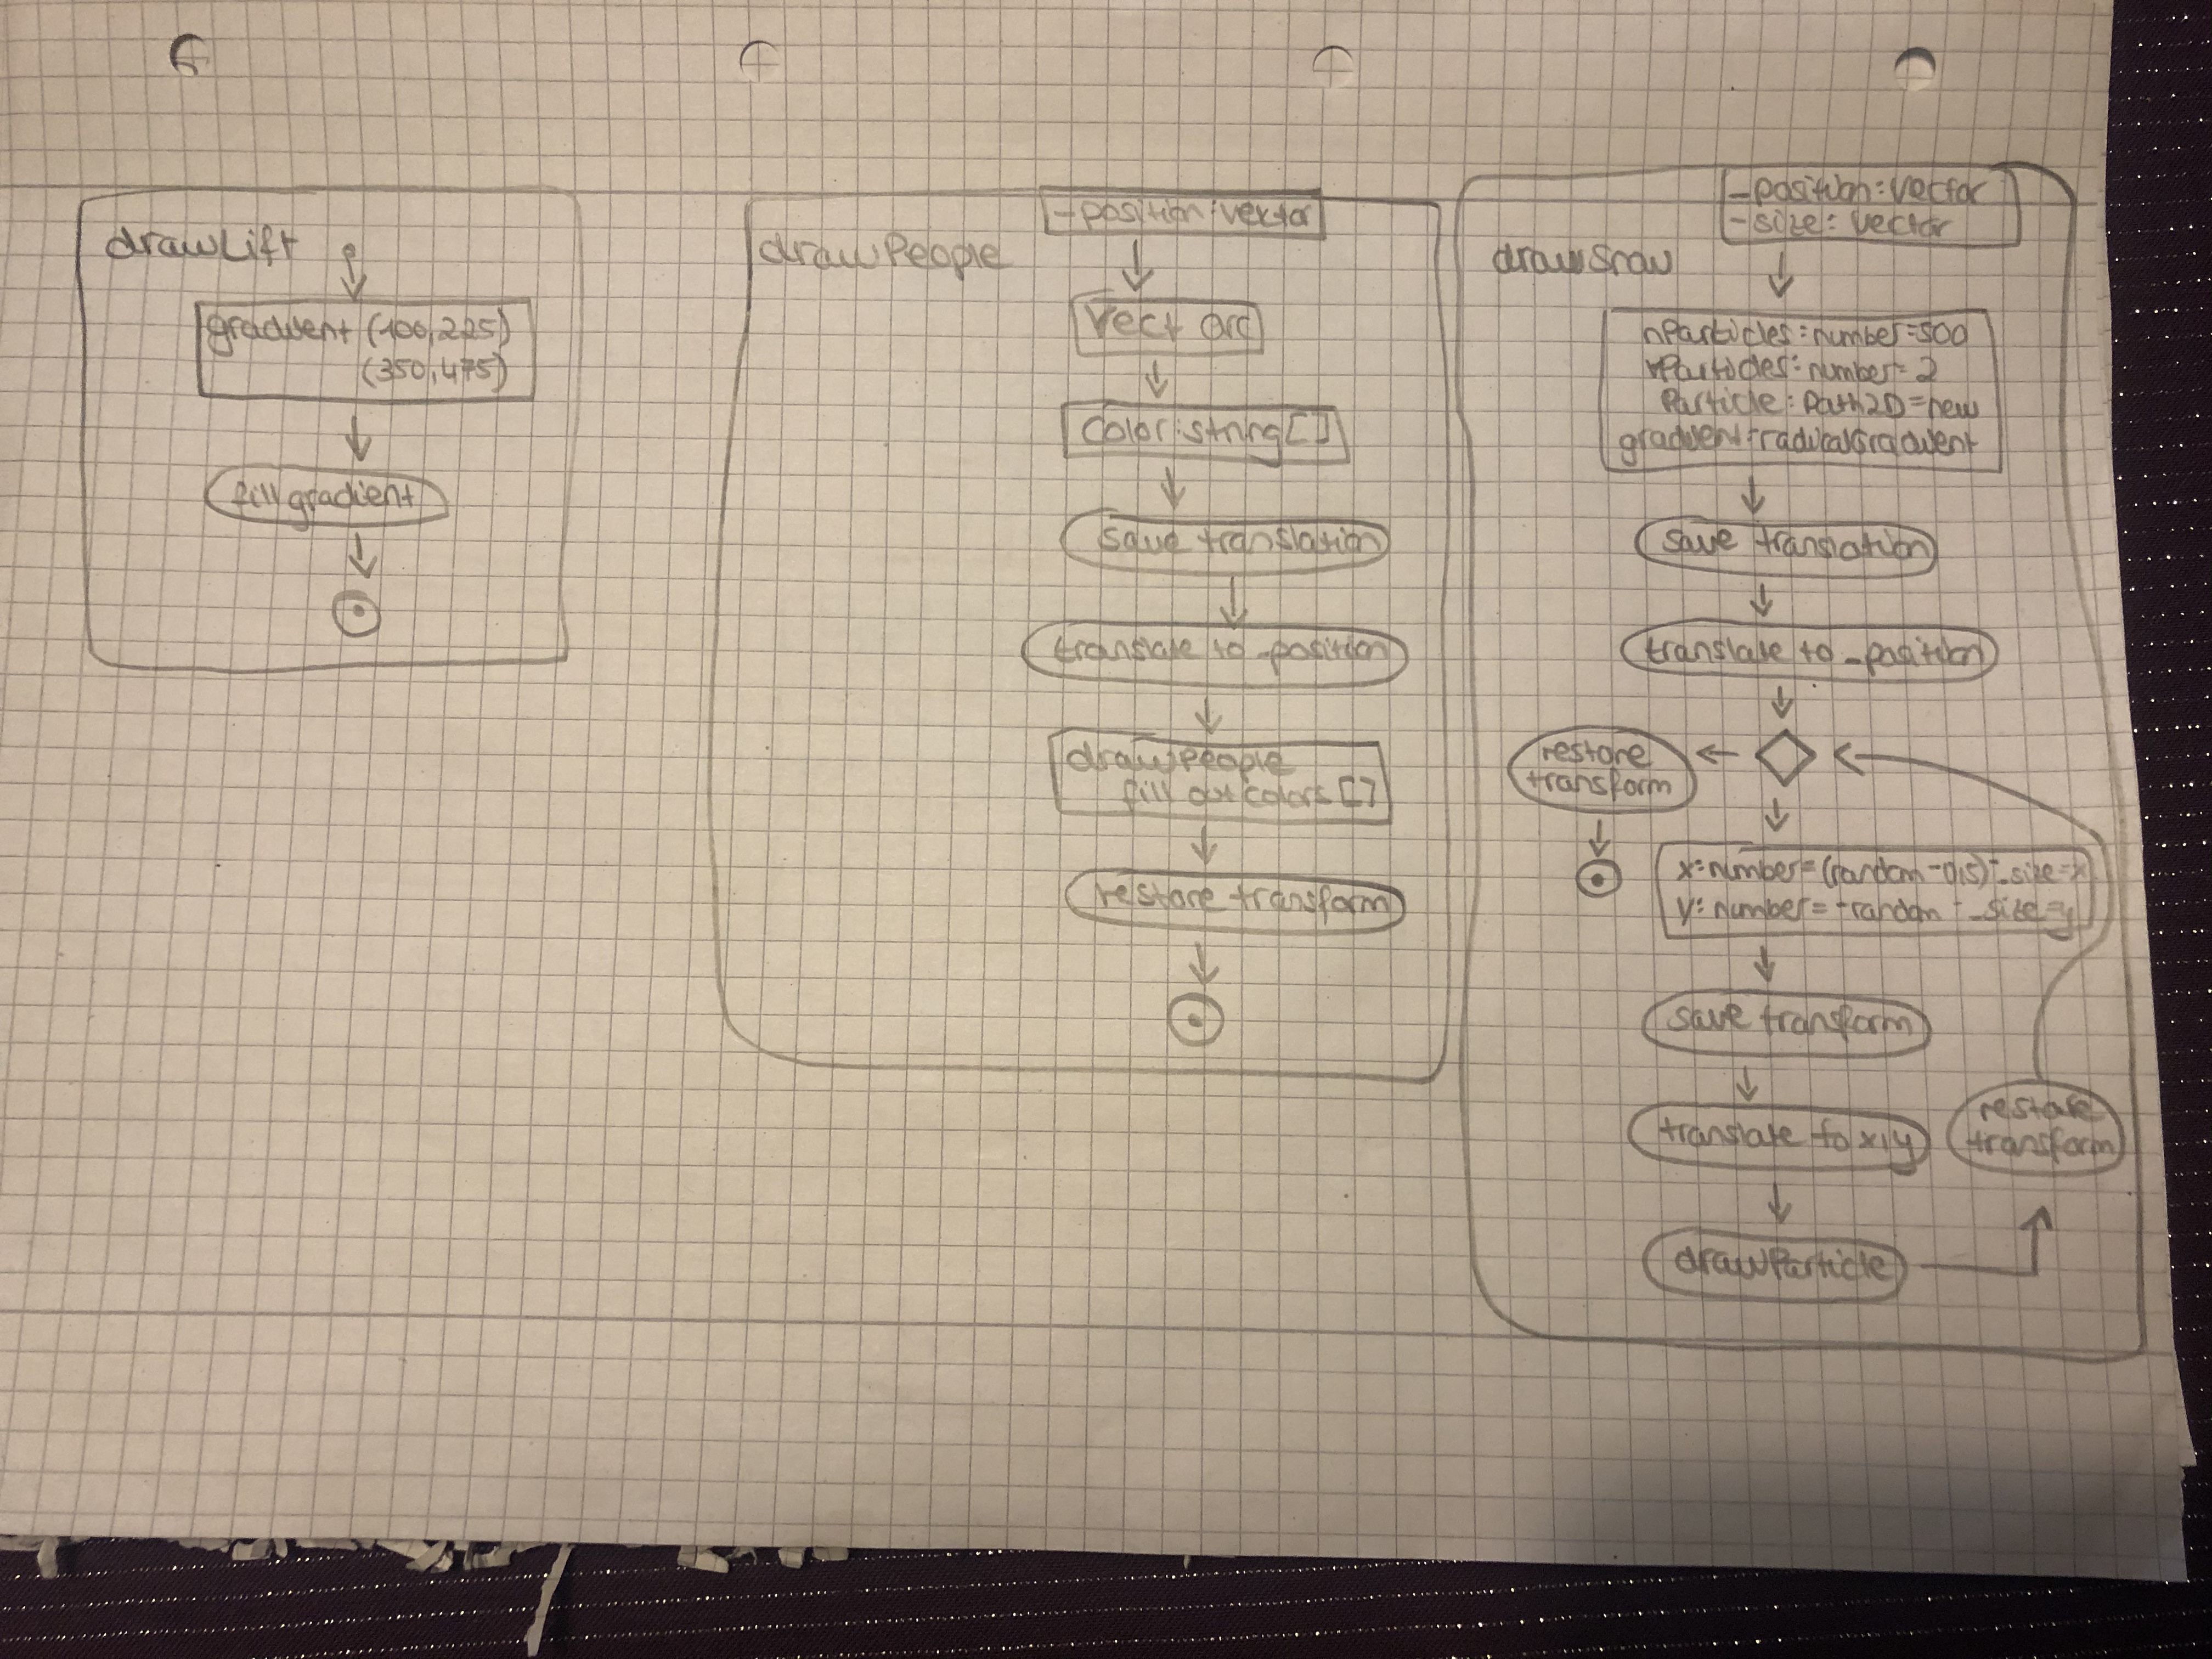 drawLift
gradient (100,225)
(350,475)
fill gradient
drawPeople
-position:vector
Vect arc
Color:string[]
save translation
translate to _position
drawPeople
fill colors[]
restore transform
drawSnow
-position:vector
-size: vector
nParticles:number=500
rParticles:number=2
Particle:Path2D=new
gradient:radialGradient
save translation
translate to _position
restore
transform
x:number=(random -0,5)·_size=x
y:number=-random · _size=y
save transform
translate to x,y
drawParticle
restore
transform